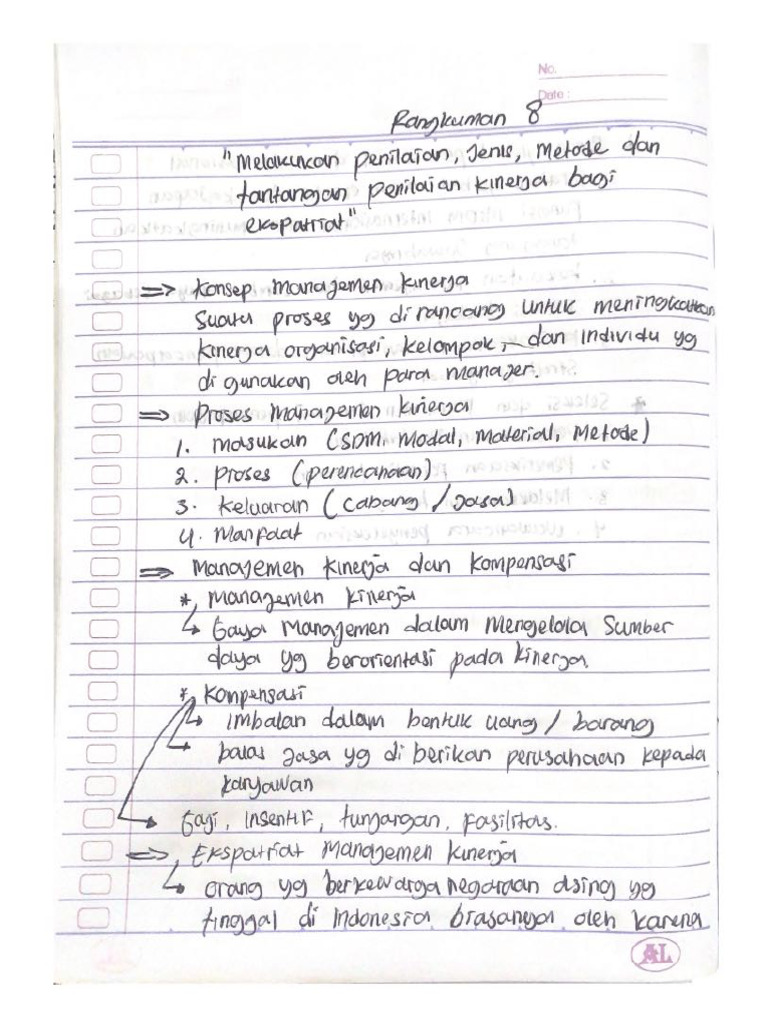 No.
Date :
Rangkuman 8
"Melakukan penilaian, Jenis, Metode dan
tantangan penilaian kinerja bagi
ekspatriat"
=> Konsep Managemen kinerja
Suatu proses yg dirancang untuk meningkatkan
kinerja organisasi, kelompok, dan individu yg
di gunakan oleh para manajer.
=> Proses Managemen kinerja
1. Masukan (SDM. Modal, Material, Metode)
2. Proses (perencanaan)
3. Keluaran (cabang / Jasa)
4. Manfaat
=> Manajemen kinerja dan kompensasi
* Managemen kinerja
↳ Gaya Managemen dalam Mengelola Sumber
daya yg berorientasi pada kinerja.
* Kompensasi
↳ Imbalan dalam bentuk uang / barang
↳ balas Jasa yg di berikan perusahaan kepada
karyawan
Gaji, Insentif, tunjangan, Fasilitas.
=> Ekspatriat Managemen kinerja
↳ orang yg berkewarganegaraan asing yg
tinggal di Indonesia biasanya oleh karena
AL